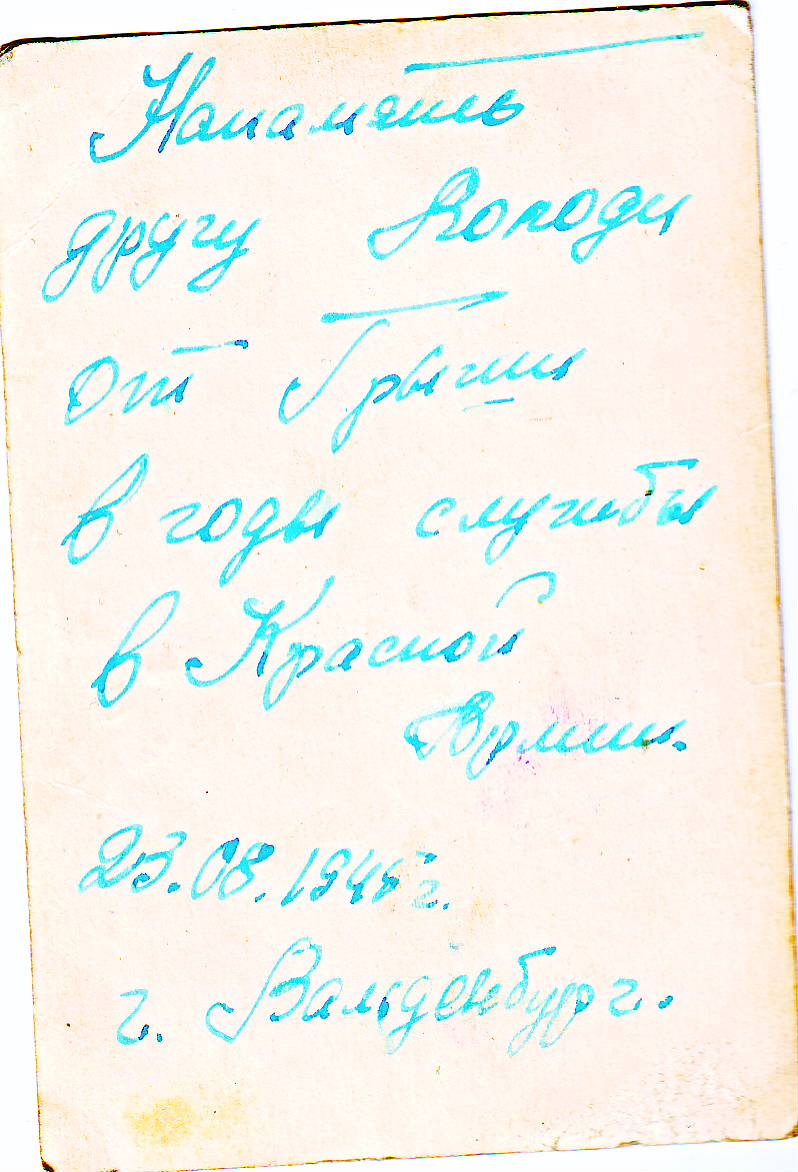 Напамять
другу Володи
от Грыши
в годы службы
в Красной
Армии.
23.08.1945 г.
г. Вальденбург.